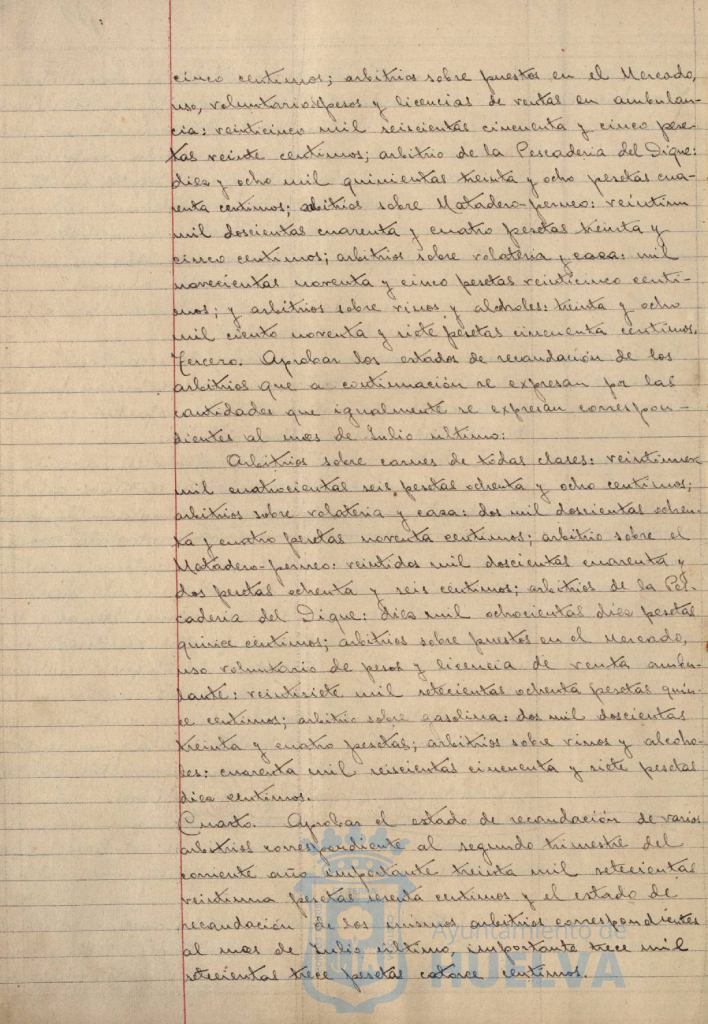 cinco centimos; arbitrios sobre puestos en el Mercado,
uso, voluntario pesos y licencias de ventas en ambulan-
cia: veinticinco mil seiscientas cincuenta y cinco pese-
tas veinte centimos; arbitrio de la Pescaderia del Dique:
diez y ocho mil quinientas treinta y ocho pesetas cua-
renta centimos; arbitrios sobre Matadero-perneo: veintiun
mil doscientas cuarenta y cuatro pesetas treinta y
cinco centimos; arbitrios sobre volateria y caza: mil
novecientas noventa y cinco pesetas veinticinco centi-
mos; y arbitrios sobre vinos y alcoholes: treinta y ocho
mil ciento noventa y siete pesetas cincuenta centimos.
Tercero. Aprobar los estados de recaudación de los
arbitrios que a continuación se expresan por las
cantidades que igualmente se expresan correspon-
dientes al mes de Julio último:
Arbitrios sobre carnes de todas clases: veintinueve
mil cuatrocientas seis pesetas ochenta y ocho centimos;
arbitrios sobre volateria y caza: dos mil doscientas ochen-
ta y cuatro pesetas noventa centimos; arbitrio sobre el
Matadero-perneo: veintidos mil doscientas cuarenta y
dos pesetas ochenta y seis centimos; arbitrios de la Pes-
caderia del Dique: diez mil ochocientas diez pesetas
quince centimos; arbitrios sobre puestos en el Mercado,
uso voluntario de pesos y licencia de venta ambu-
lante: veintisiete mil setecientas ochenta pesetas quin-
ce centimos; arbitrio sobre gasolina: dos mil doscientas
treinta y cuatro pesetas; arbitrios sobre vinos y alcoho-
les: cuarenta mil seiscientas cincuenta y siete pesetas
diez centimos.
Cuarto. Aprobar el estado de recaudación de varios
arbitrios correspondiente al segundo trimestre del
corriente año importante treinta mil setecientas
veintiuna pesetas sesenta centimos y el estado de
recaudación de los mismos arbitrios correspondientes
al mes de Julio último, importante trece mil
setecientas trece pesetas catorce centimos.
Ayuntamiento de
HUELVA